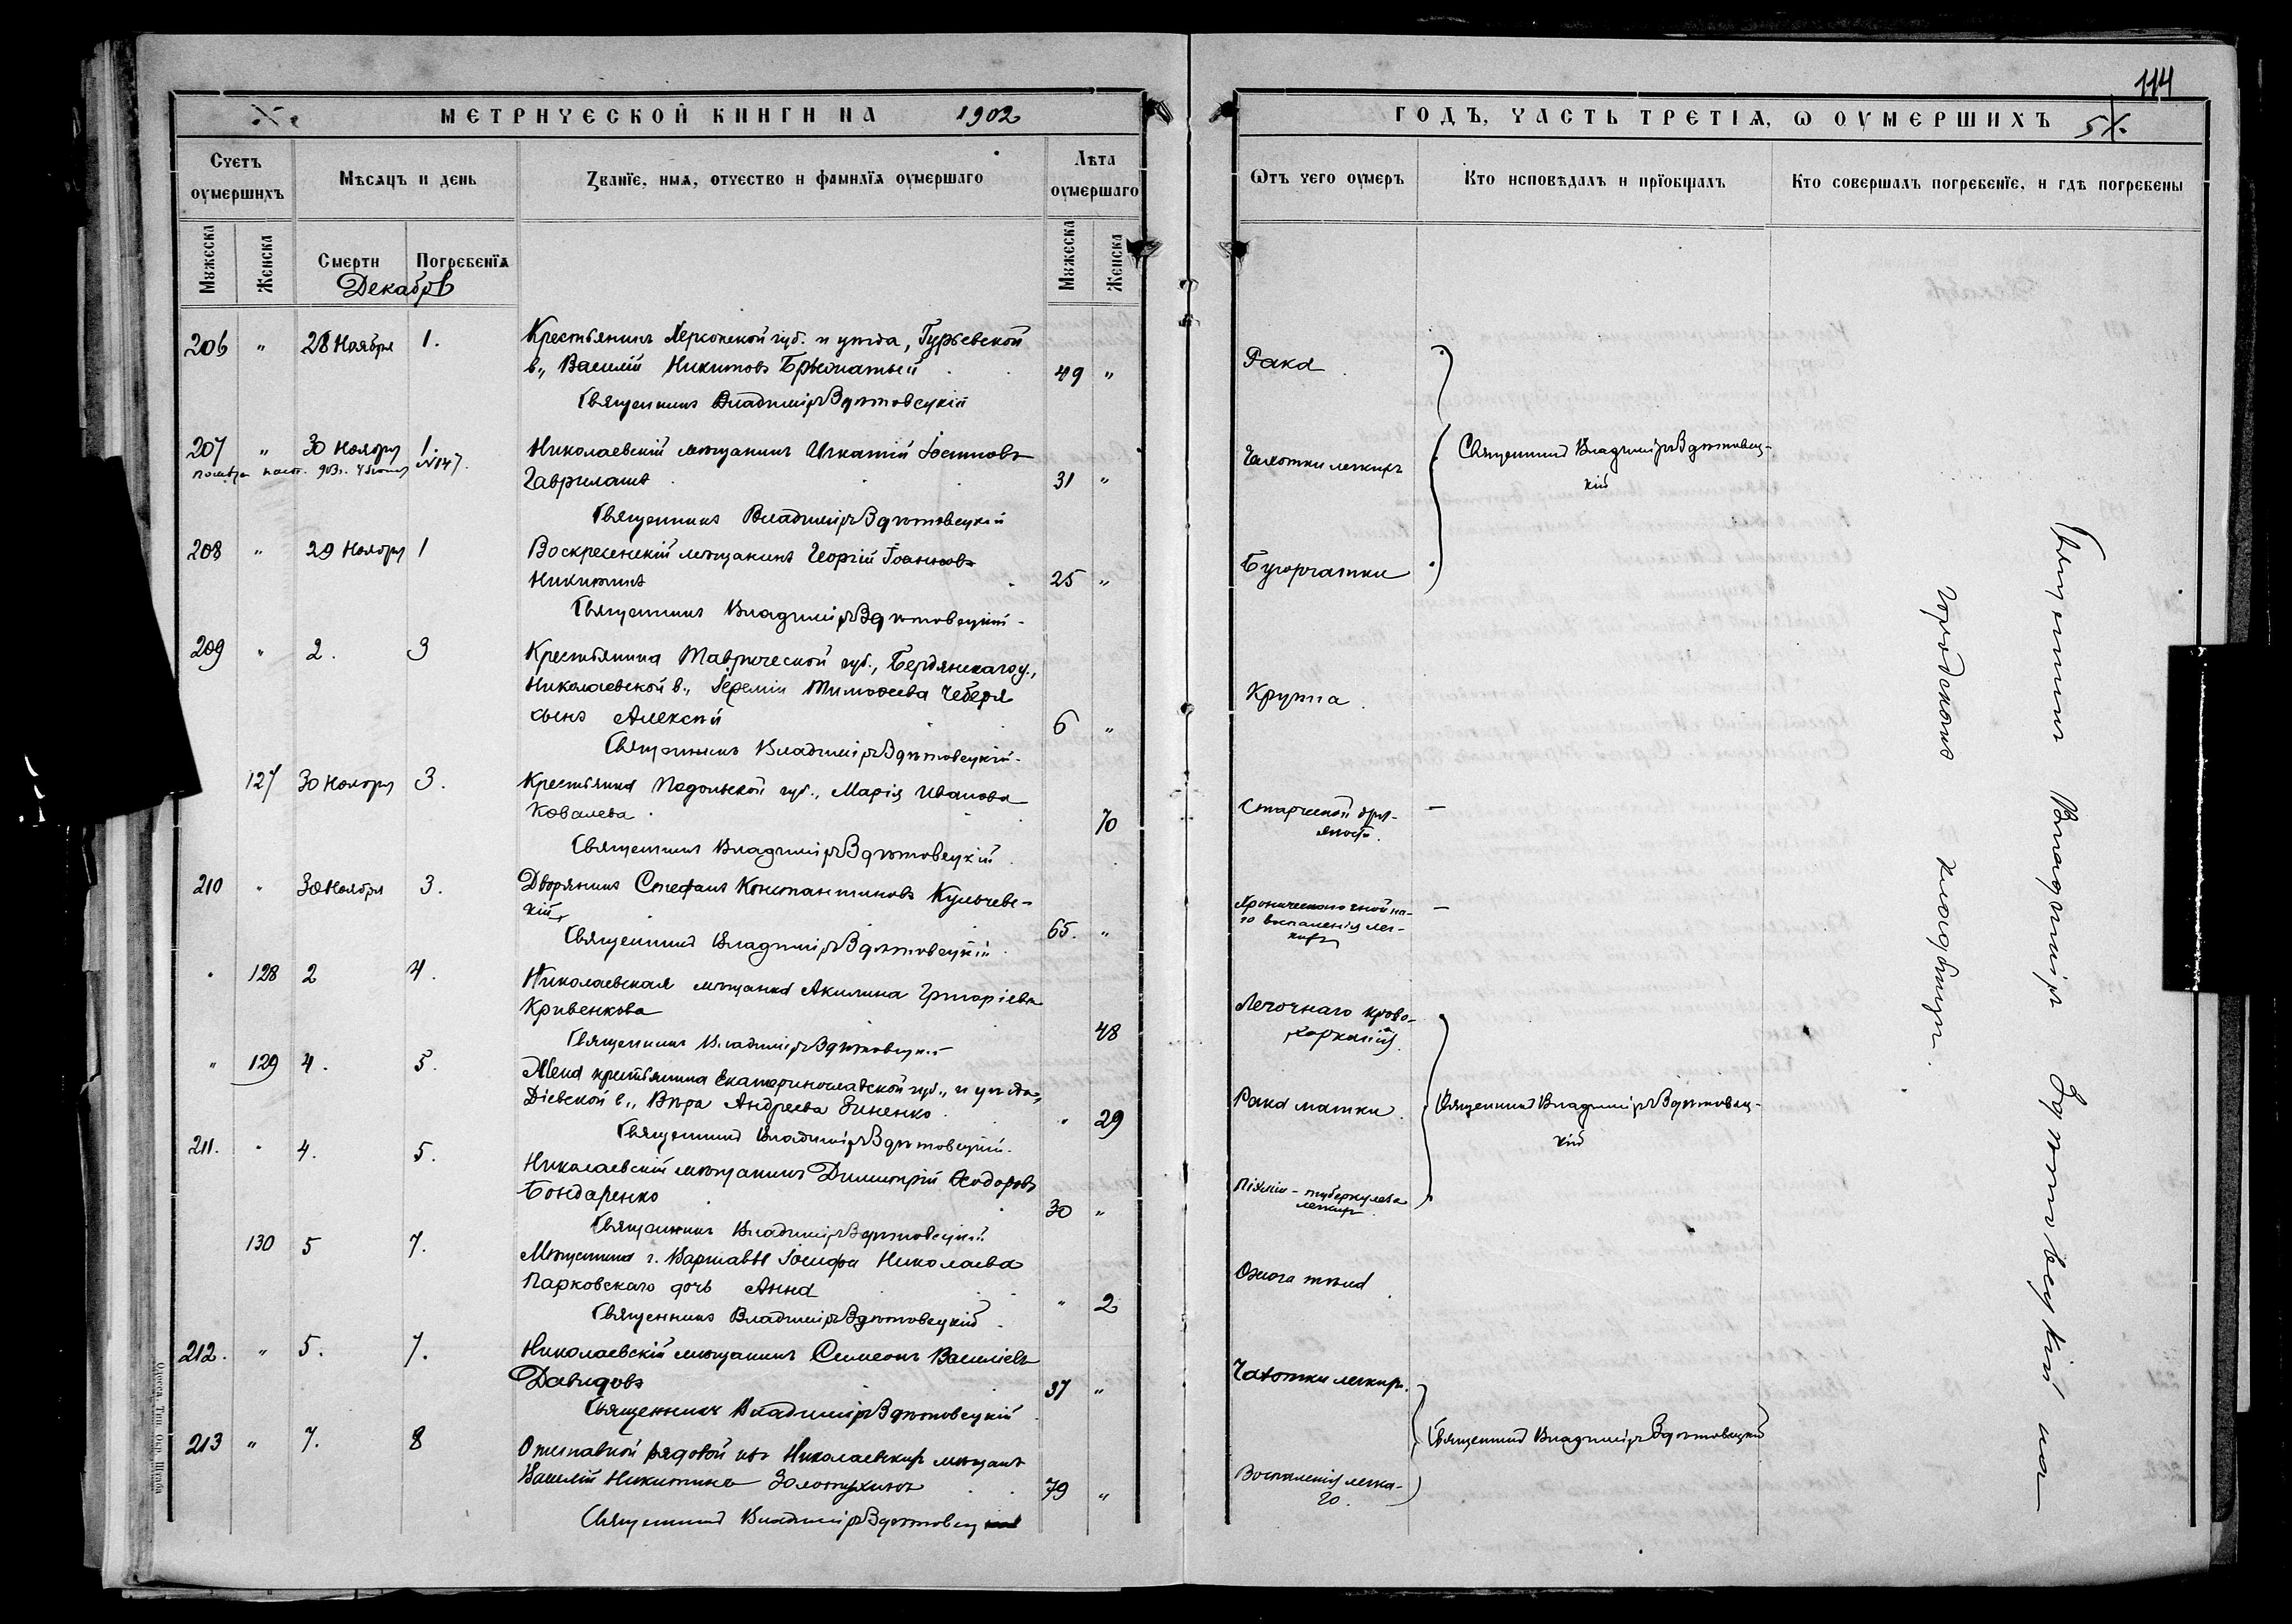 114
МЕТРИЧЕСКОЙ КНИГИ НА 1902
ГОДЪ, ЧАСТЬ ТРЕТІЯ, Ѡ ОУМЕРШИХЪ
Счетъ оумершихъ
Мѣсяцъ и день
Званїе, имя, отчество и фамилїя оумершаго
Лѣта оумершаго
Ѿтъ чего оумеръ
Кто исповѣдалъ и прїобщалъ
Кто совершалъ погребенїе, и гдѣ погребены
Мужеска
Женска
Смерти
Погребенїя
Мужеска
Женска
Декабрь
206 " 28 Ноября 1.
Крестьянинъ Херсонской губ. и уѣзда, Гурьевской
в., Василій Никитовъ 49 "
Рака
Священникъ Владиміръ Здѣтовецкій
207 " 30 Ноября 1.
№147.
Николаевскій мѣщанинъ Игнатій Іосифовъ
Гаврилашъ 31 "
Чахотки легкихъ
Священникъ Владиміръ Здѣтовец-
кій
Священникъ Владиміръ Здѣтовецкій
208 " 29 Ноября 1
Воскресенскій мѣщанинъ Георгій Іоанновъ
Никитинъ 25 "
Бугорчатки
Священникъ Владиміръ Здѣтовецкій
209 " 2. 3
Крестьянина Таврической губ., Бердянскаго у.,
Николаевской в., Іереміи Тимоѳеева Чеберя
сынъ Алексѣй 6 "
Крупа
Священникъ Владиміръ Здѣтовецкій
127 30 Ноября 3.
Крестьянка Подольской губ., Марія Иванова
Ковалева 70
Старческой дрях-
лости.
Священникъ Владиміръ Здѣтовецкій
210 " 30 Ноября 3.
Дворянинъ Стефанъ Константиновъ Кульчев-
кій 65. "
Хроническаго
го воспаленія лег-
кихъ
Священникъ Владиміръ Здѣтовецкій
" 128 2 4.
Николаевская мѣщанка Акилина Григоріева
Кривенкова 48
Легочнаго крово-
харканія
Священникъ Владиміръ Здѣтовецкій
" 129 4. 5.
Жена крестьянина Екатеринославской губ., и уѣзда,
Діевской в., Вѣра Андреева Зиненко " 29
Рака матки
Священникъ Владиміръ Здѣтовец-
кій
Священникъ Владиміръ Здѣтовецкій
211. " 4. 5.
Николаевскій мѣщанинъ Димитрій Ѳеодоровъ
Бондаренко 30 "
Піэміи - туберкулеза
легкихъ
Священникъ Владиміръ Здѣтовецкій
130 5 7.
Мѣщанина г. Варшавы Іосифа Николаева
Парковскаго дочь Анна " 2
Ожога тѣла
Священникъ Владиміръ Здѣтовецкій
212. " 5. 7.
Николаевскій мѣщанинъ Симеонъ Васильевъ
Давидовъ 37 "
Чахотки легкихъ.
Священникъ Владиміръ Здѣтовецкій
213 " 7. 8
Отставной рядовой изъ Николаевскихъ мѣщанъ
Василій Никитинъ Золотухинъ 79 "
Воспаленія легка-
го.
Священникъ Владиміръ Здѣтовецкій
Священникъ Владиміръ Здѣтовец
Священникъ Владиміръ Здѣтовецкій на
городскомъ кладбищѣ.